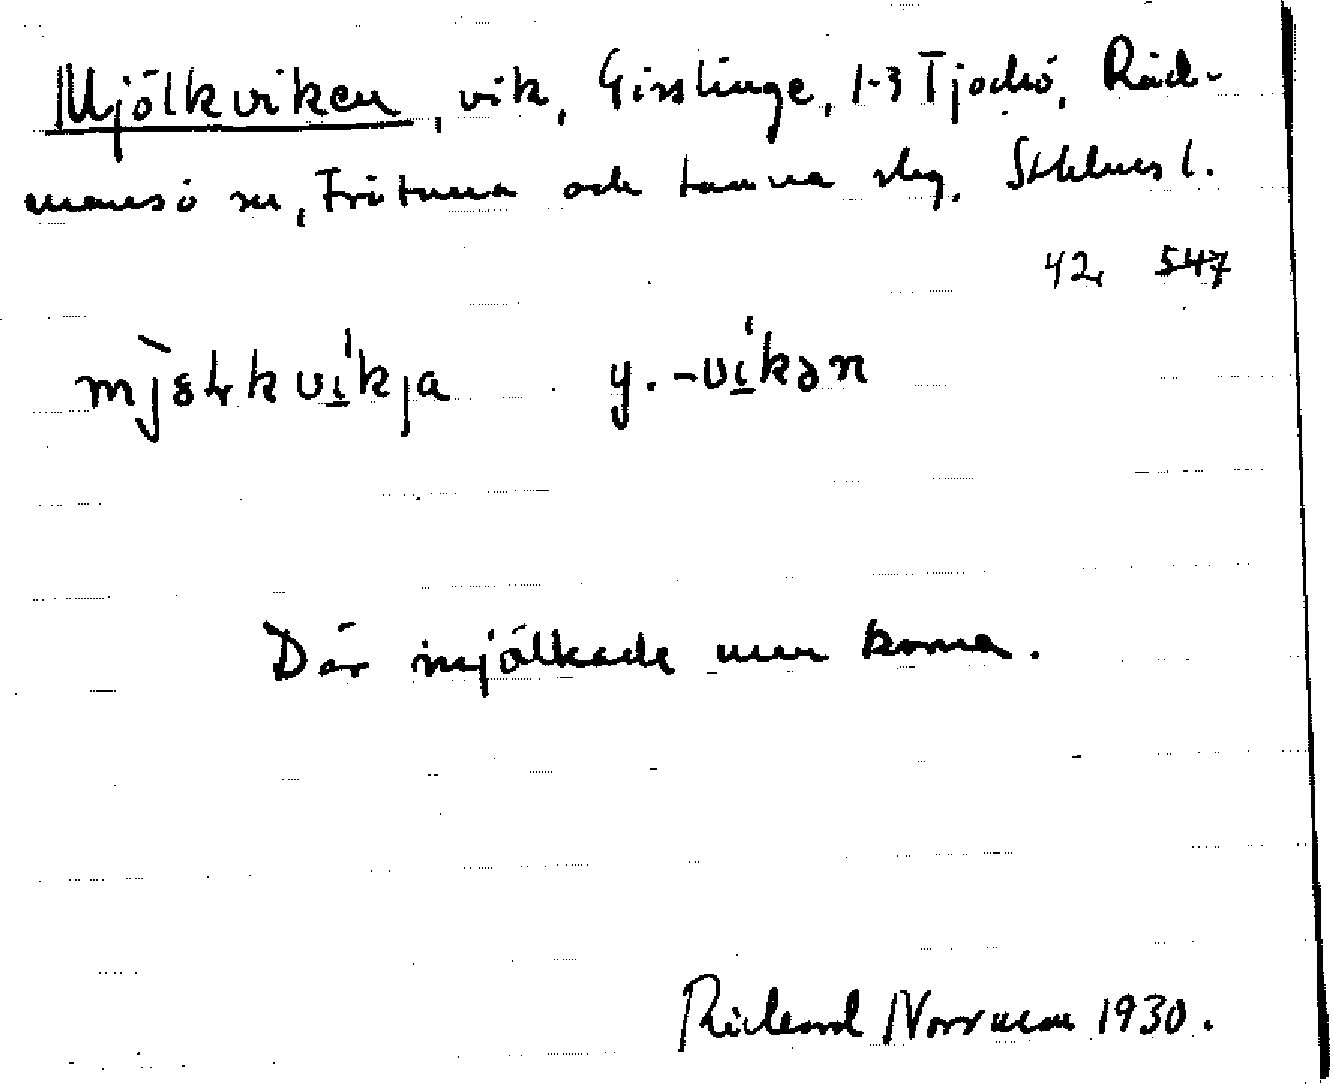 Mjölkviken, vik, Gisslinge, 1-3 Tjockö, Råd-
mansö sn, Frötuna och Länna slg. Sthlms l.
42, 547
mjölkvikja y. -vikən
Där mjölkade mer korna.
Rickard Norrman 1930.